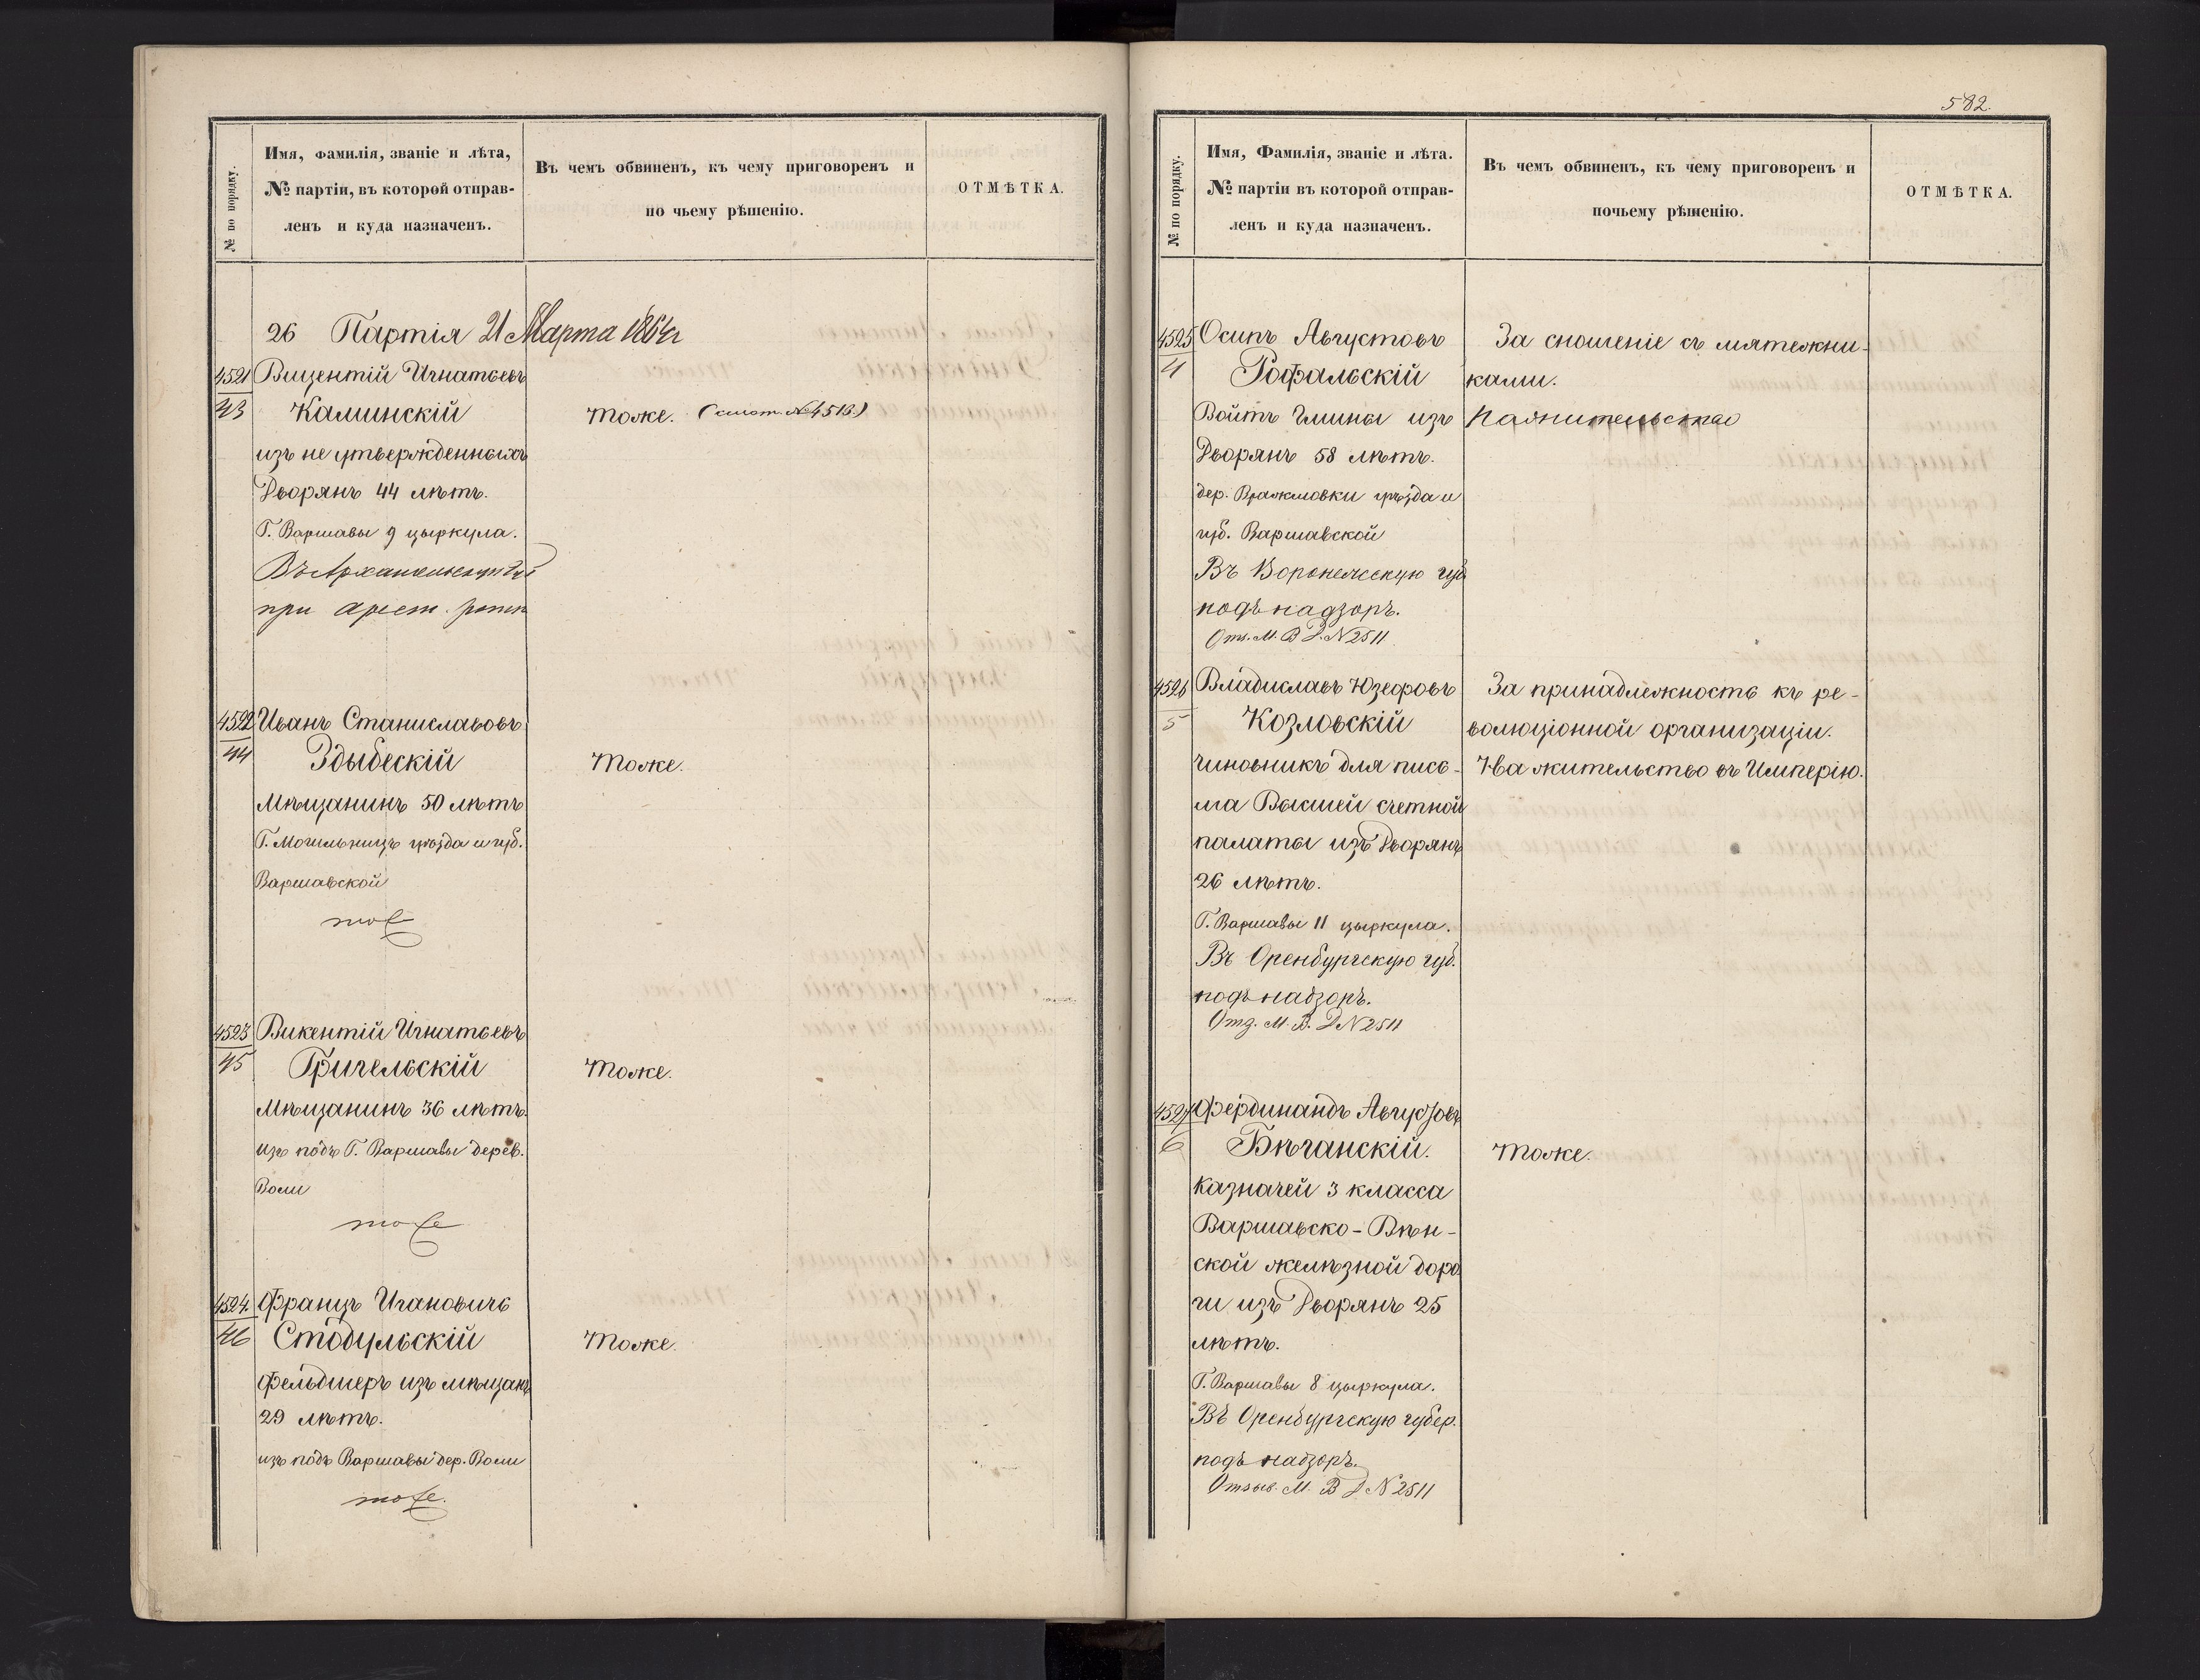 № по порядку.
Имя, фамилія, званіе и лѣта,
№ партіи, въ которой отправ-
ленъ и куда назначенъ.
Въ чемъ обвиненъ, къ чему приговоренъ и
по чьему рѣшенію.
ОТМѢТКА.
26 Партія 21 Марта 1864 г
4521
43
Вицентій Игнатьевъ
Калинскій
изъ не утвержденныхъ
Дворянъ 44 лѣтъ.
Г. Варшавы 9 цыркула.
Въ
при арест.
Тоже. (смот. №4513)
4522
44
Иванъ Станиславовъ
Здыбескій
Мѣщанинъ 50 лѣтъ
Г. Могильницъ уѣзда и губ.
Варшавской
тоже
Тоже.
4523
45
Викентій Игнатьевъ
Григельскій
Мѣщанинъ 36 лѣтъ.
изъ подъ Г. Варшавы дерев.
Воли
тоже
Тоже.
4524.
46
Францъ
Стодульскій
Фельдшеръ изъ мѣщанъ
29 лѣтъ.
изъ подъ Варшавы дер. Воли
тоже.
Тоже.
582.
№ по порядку.
Имя, Фамилія, званіе и лѣта.
№ партіи въ которой отправ-
ленъ и куда назначенъ.
Въ чемъ обвиненъ, къ чему приговоренъ и
почьему рѣшенію.
ОТМѢТКА.
4525
4
Осипъ Августовъ
Рофальскій
Войтъ Гмины изъ
Дворянъ 58 лѣтъ.
дер. уѣзда и
губ. Варшавской
Въ Воронежскую губ
подъ надзоръ.
Отз. М. В Д. N 2511
За сношеніе съ мятежни-
ками.
На жительство
4526
5
Владиславъ Юзефовъ
Козловскій
чиновникъ для пись-
ма Высшей счетной
палаты изъ Дворянъ
26 лѣтъ.
Г. Варшавы 11 цыркула.
Въ Оренбургскую губ.
подъ надзоръ.
Отз. М. В. Д N 2511
За принадлежность къ ре-
волюціонной организаціи.
На жительство въ Имперію.
4527
6
Фердинандъ
Бѣганскій.
казначей 3 класса
Варшавско-Вѣн-
ской желѣзной доро
ги изъ Дворянъ 25
лѣтъ.
Г. Варшавы 8 цыркула.
Въ Оренбургскую губер.
подъ надзоръ.
Отзыв. М. В Д N 2511
Тоже.